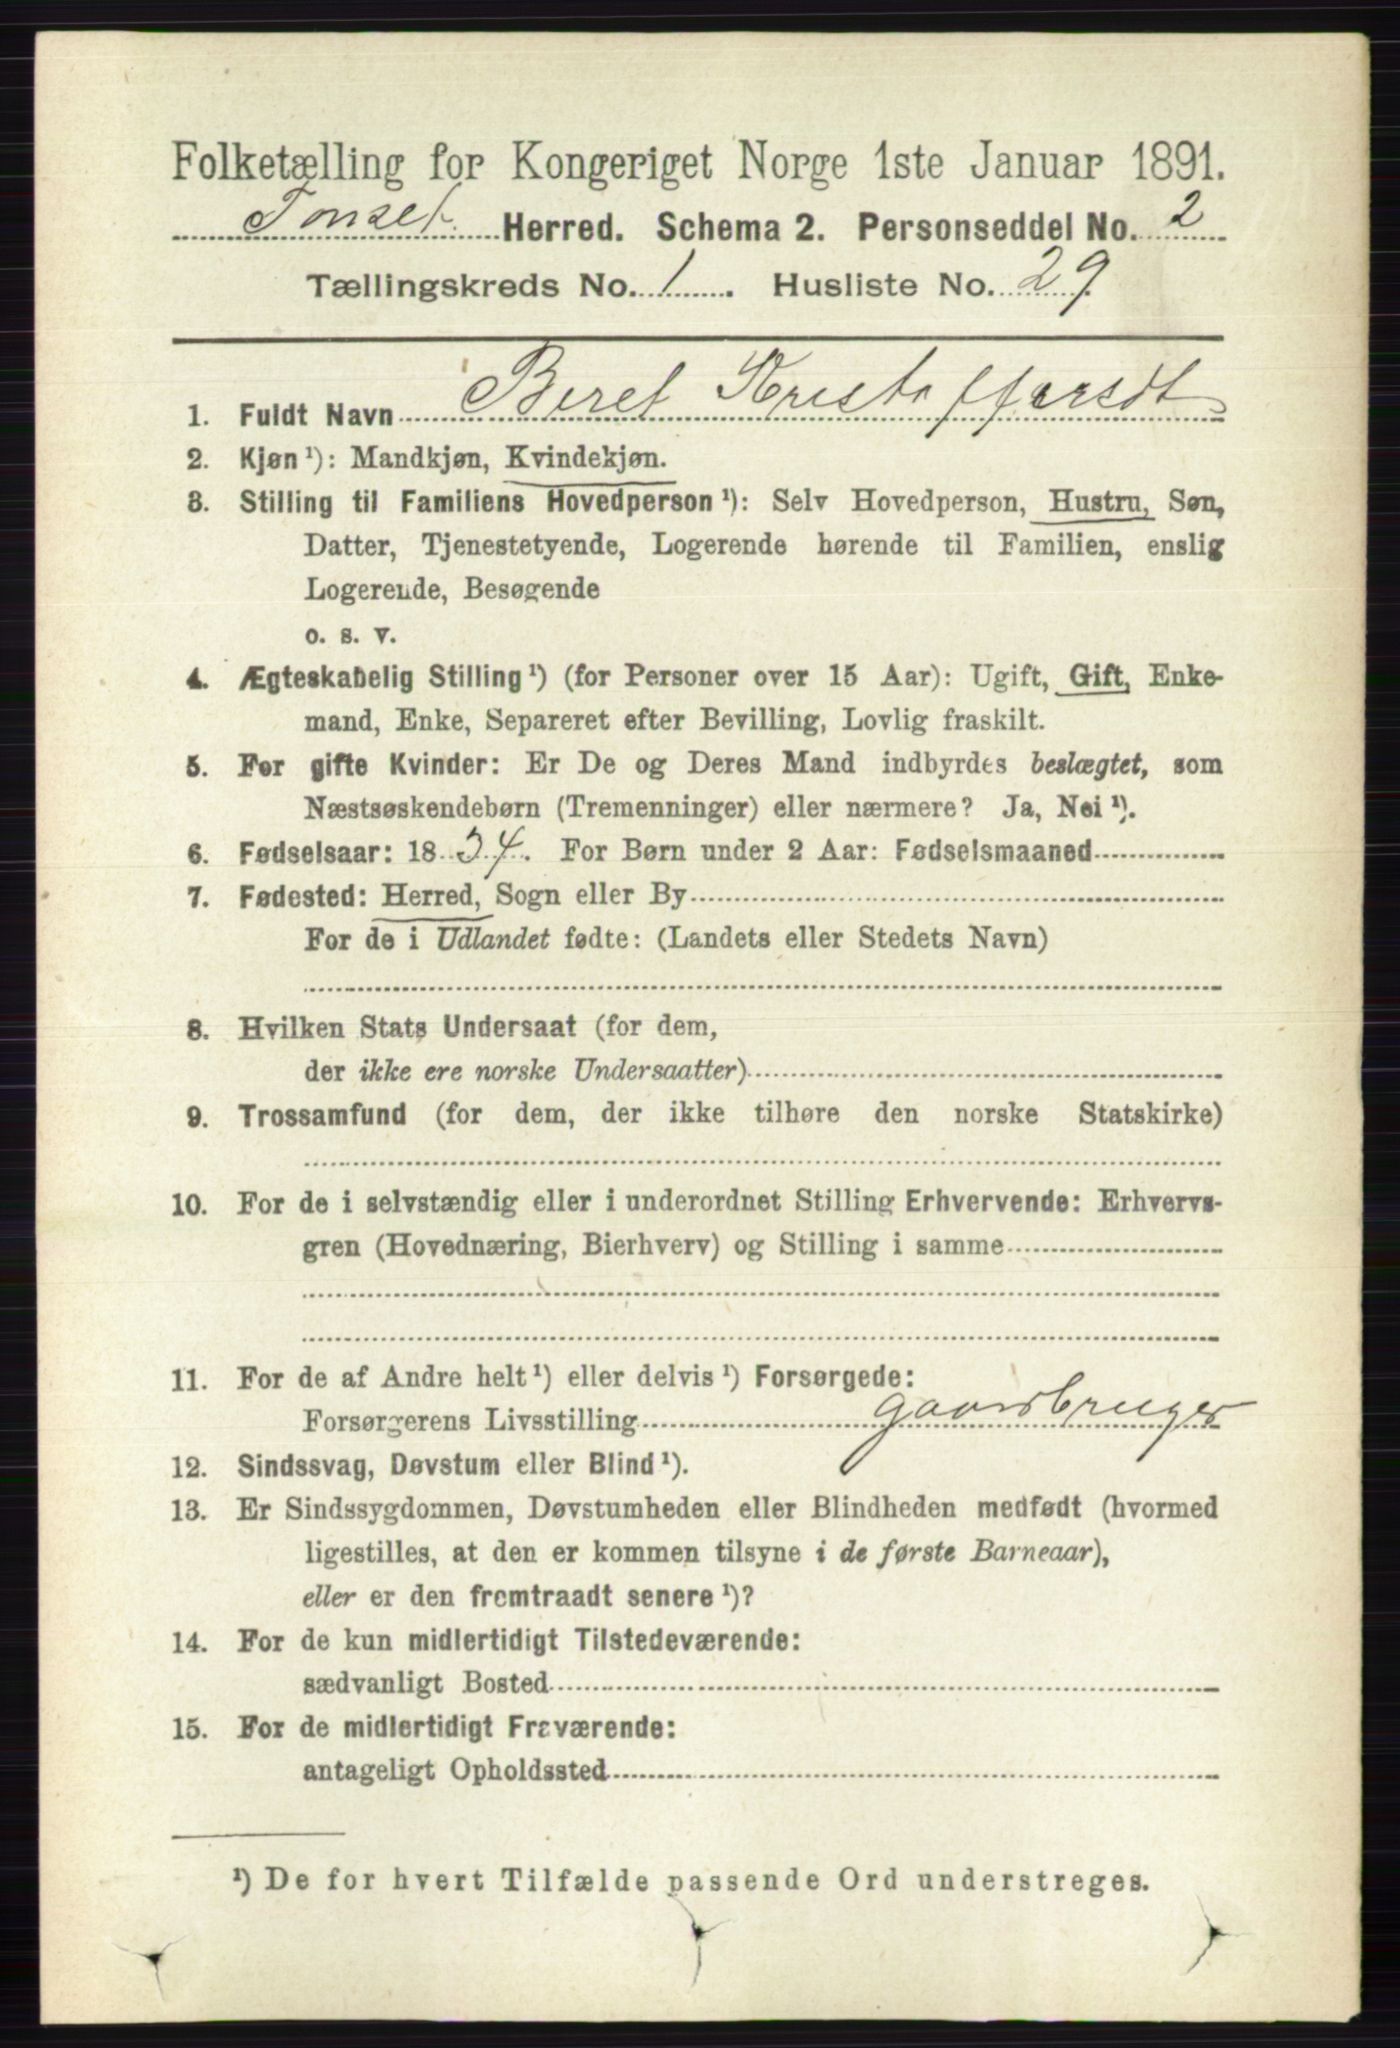 Folketælling for Kongeriget Norge 1ste Januar 1891.
Tønset Herred. Schema 2. Personseddel No. 2
Tællingskreds No. 1. Husliste No. 29.
1. Fuldt Navn Beret Kristoffersdt
2. Kjøn ¹): Mandkjøn, Kvindekjøn.
3. Stilling til Familiens Hovedperson ¹): Selv Hovedperson, Hustru, Søn,
Datter, Tjenestetyende, Logerende hørende til Familien, enslig
Logerende, Besøgende
o. s. v.
4. Ægteskabelig Stilling ¹) (for Personer over 15 Aar): Ugift, Gift, Enke-
mand, Enke, Separeret efter Bevilling, Lovlig fraskilt.
5. For gifte Kvinder: Er De og Deres Mand indbyrdes beslægtet, som
Næstsøskendebørn (Tremenninger) eller nærmere? Ja, Nei ¹).
6. Fødselsaar: 1834. For Børn under 2 Aar: Fødselsmaaned
7. Fødested: Herred, Sogn eller By
For de i Udlandet fødte: (Landets eller Stedets Navn)
8. Hvilken Stats Undersaat (for dem,
der ikke ere norske Undersaatter)
9. Trossamfund (for dem, der ikke tilhøre den norske Statskirke)
10. For de i selvstændig eller i underordnet Stilling Erhvervende: Erhvervs-
gren (Hovednæring, Bierhverv) og Stilling i samme
11. For de af Andre helt ¹) eller delvis ¹) Forsørgede:
Forsørgerens Livsstilling gaardbruger
12. Sindssvag, Døvstum eller Blind ¹).
13. Er Sindssygdommen, Døvstumheden eller Blindheden medfødt (hvormed
ligestilles, at den er kommen tilsyne i de første Barneaar),
eller er den fremtraadt senere ¹)?
14. For de kun midlertidigt Tilstedeværende:
sædvanligt Bosted
15. For de midlertidigt Fraværende:
antageligt Opholdssted
¹) De for hvert Tilfælde passende Ord understreges.